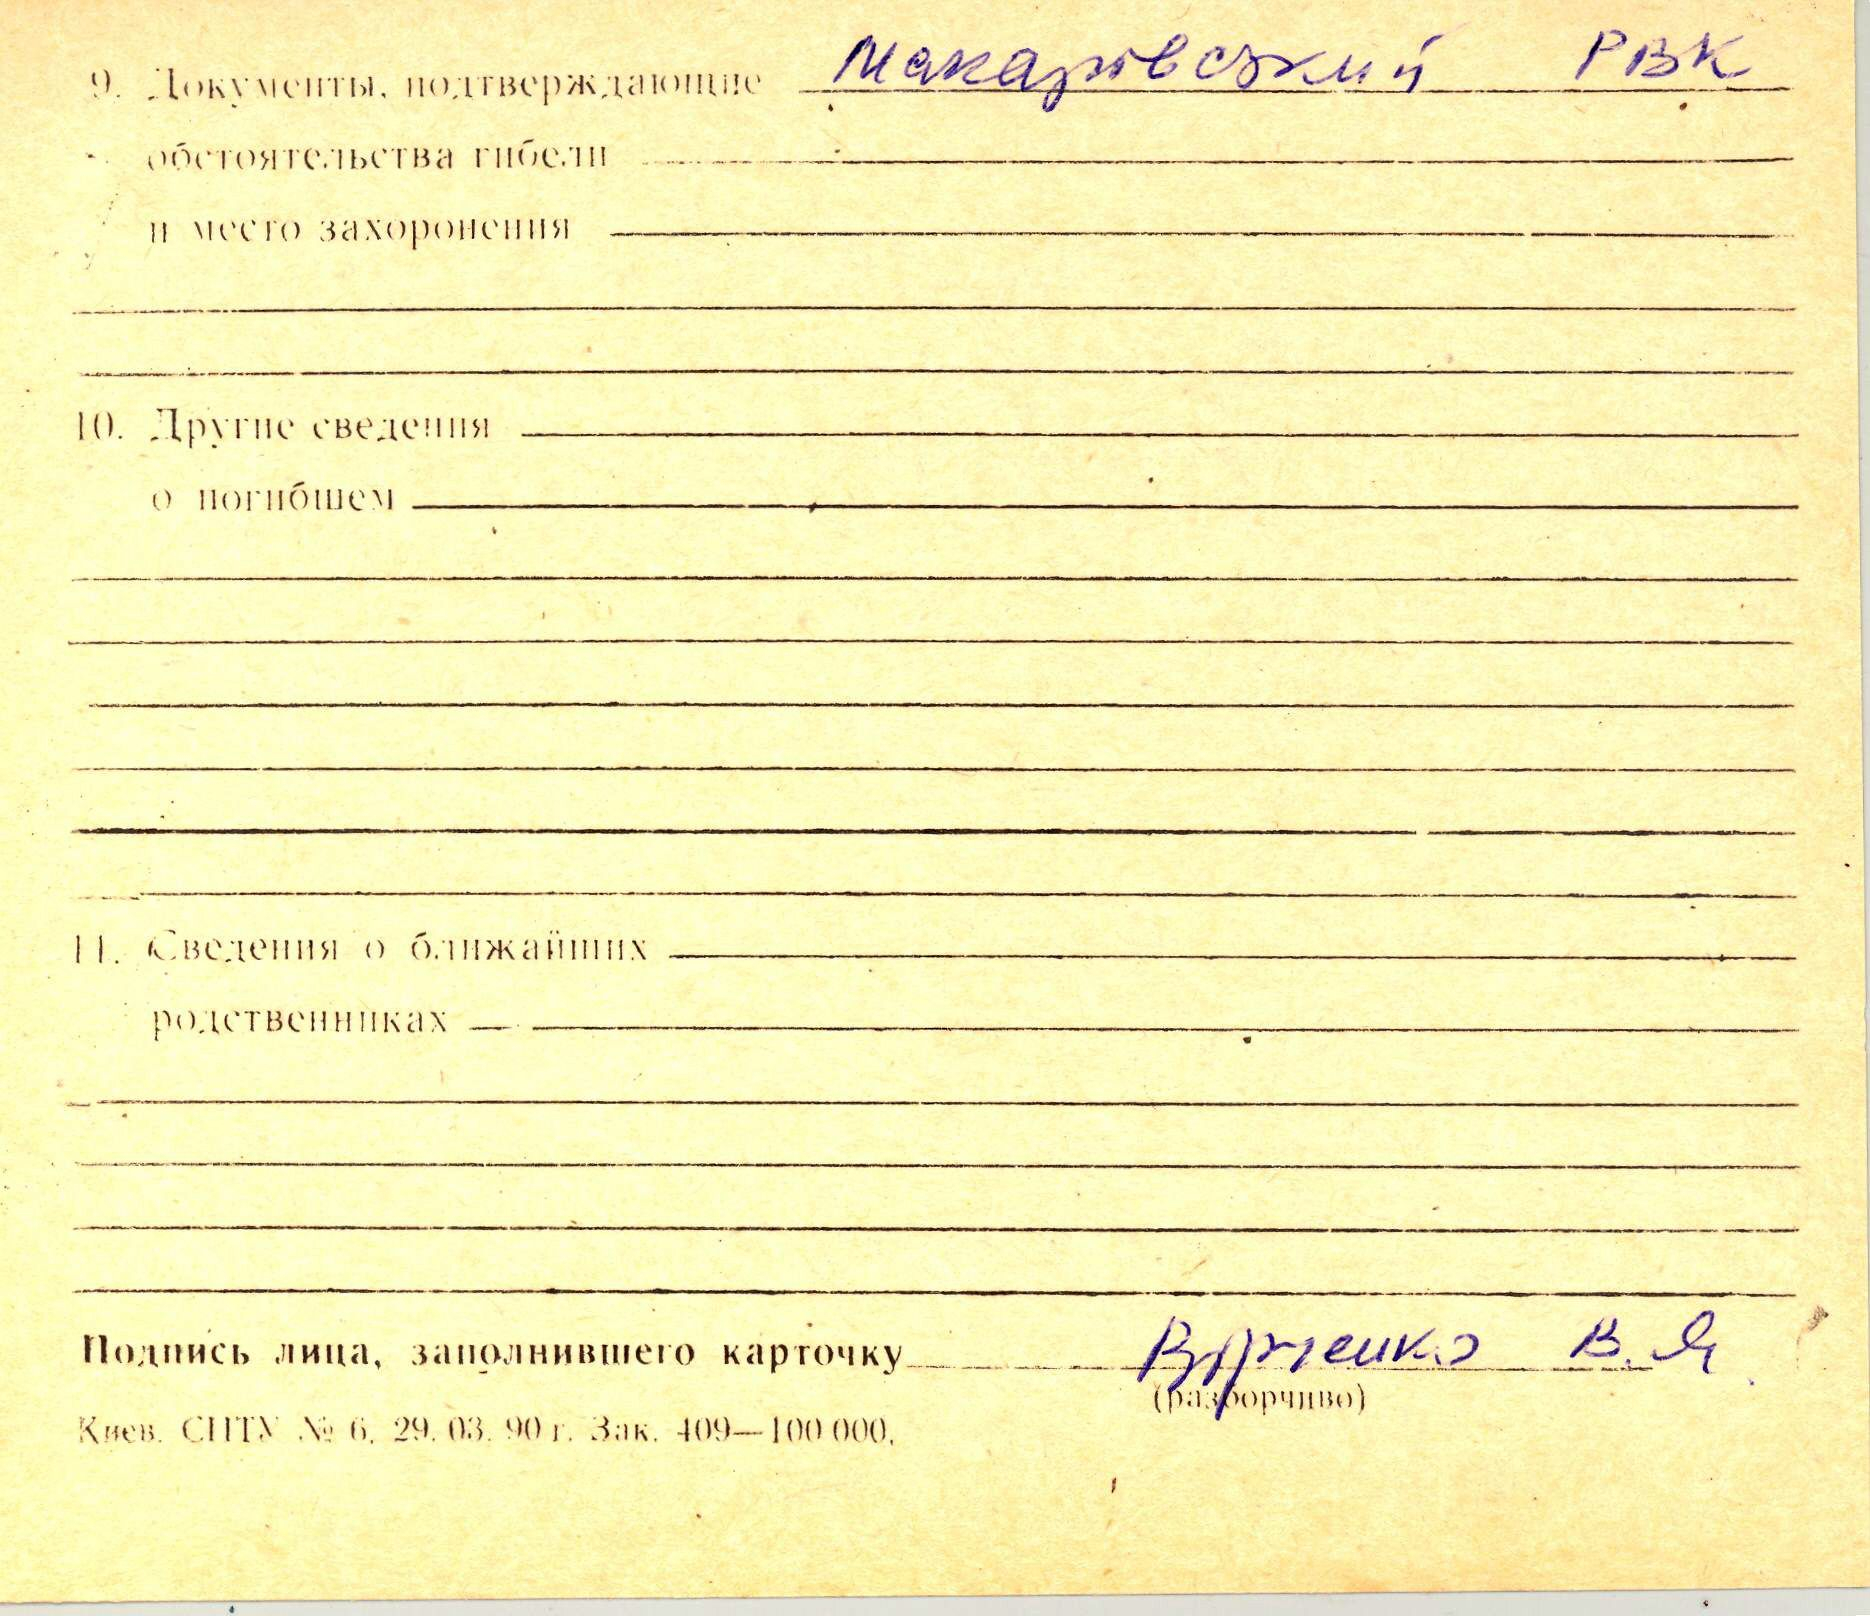 9. Документы, подтверждающие Макаровський РВК
обстоятельства гибели
и место захоронения
10. Другие сведения
о погибшем
11. Сведения о ближайших
родственниках
Подпись лица, заполнившего карточку В. Я.
(разборчиво)
Киев. СПТУ № 6. 29. 03. 90 г. Зак. 409—100 000.